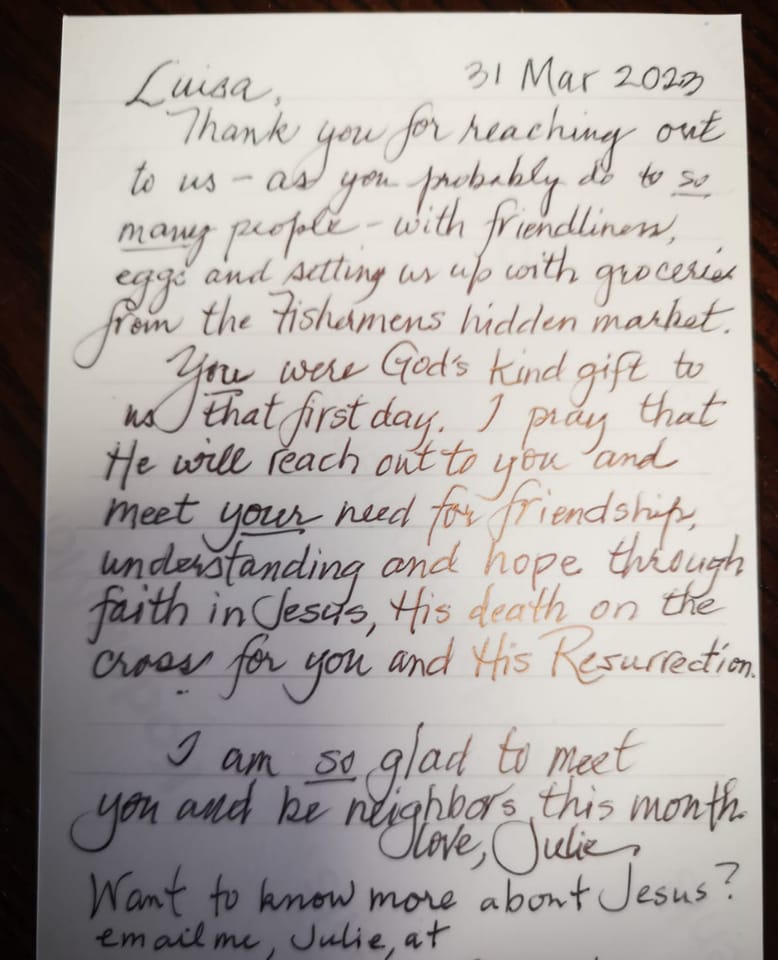 Luisa, 31 Mar 2023
Thank you for reaching out
to us - as you probably do to so
many people - with friendliness,
eggs and setting us up with groceries
from the Fishermens hidden market.
You were God's kind gift to
us that first day. I pray that
He will reach out to you and
meet your need for friendship,
understanding and hope through
faith in Jesus, His death on the
cross for you and His Resurrection.
I am so glad to meet
you and be neighbors this month.
Love, Julie
Want to know more about Jesus?
email me, Julie, at